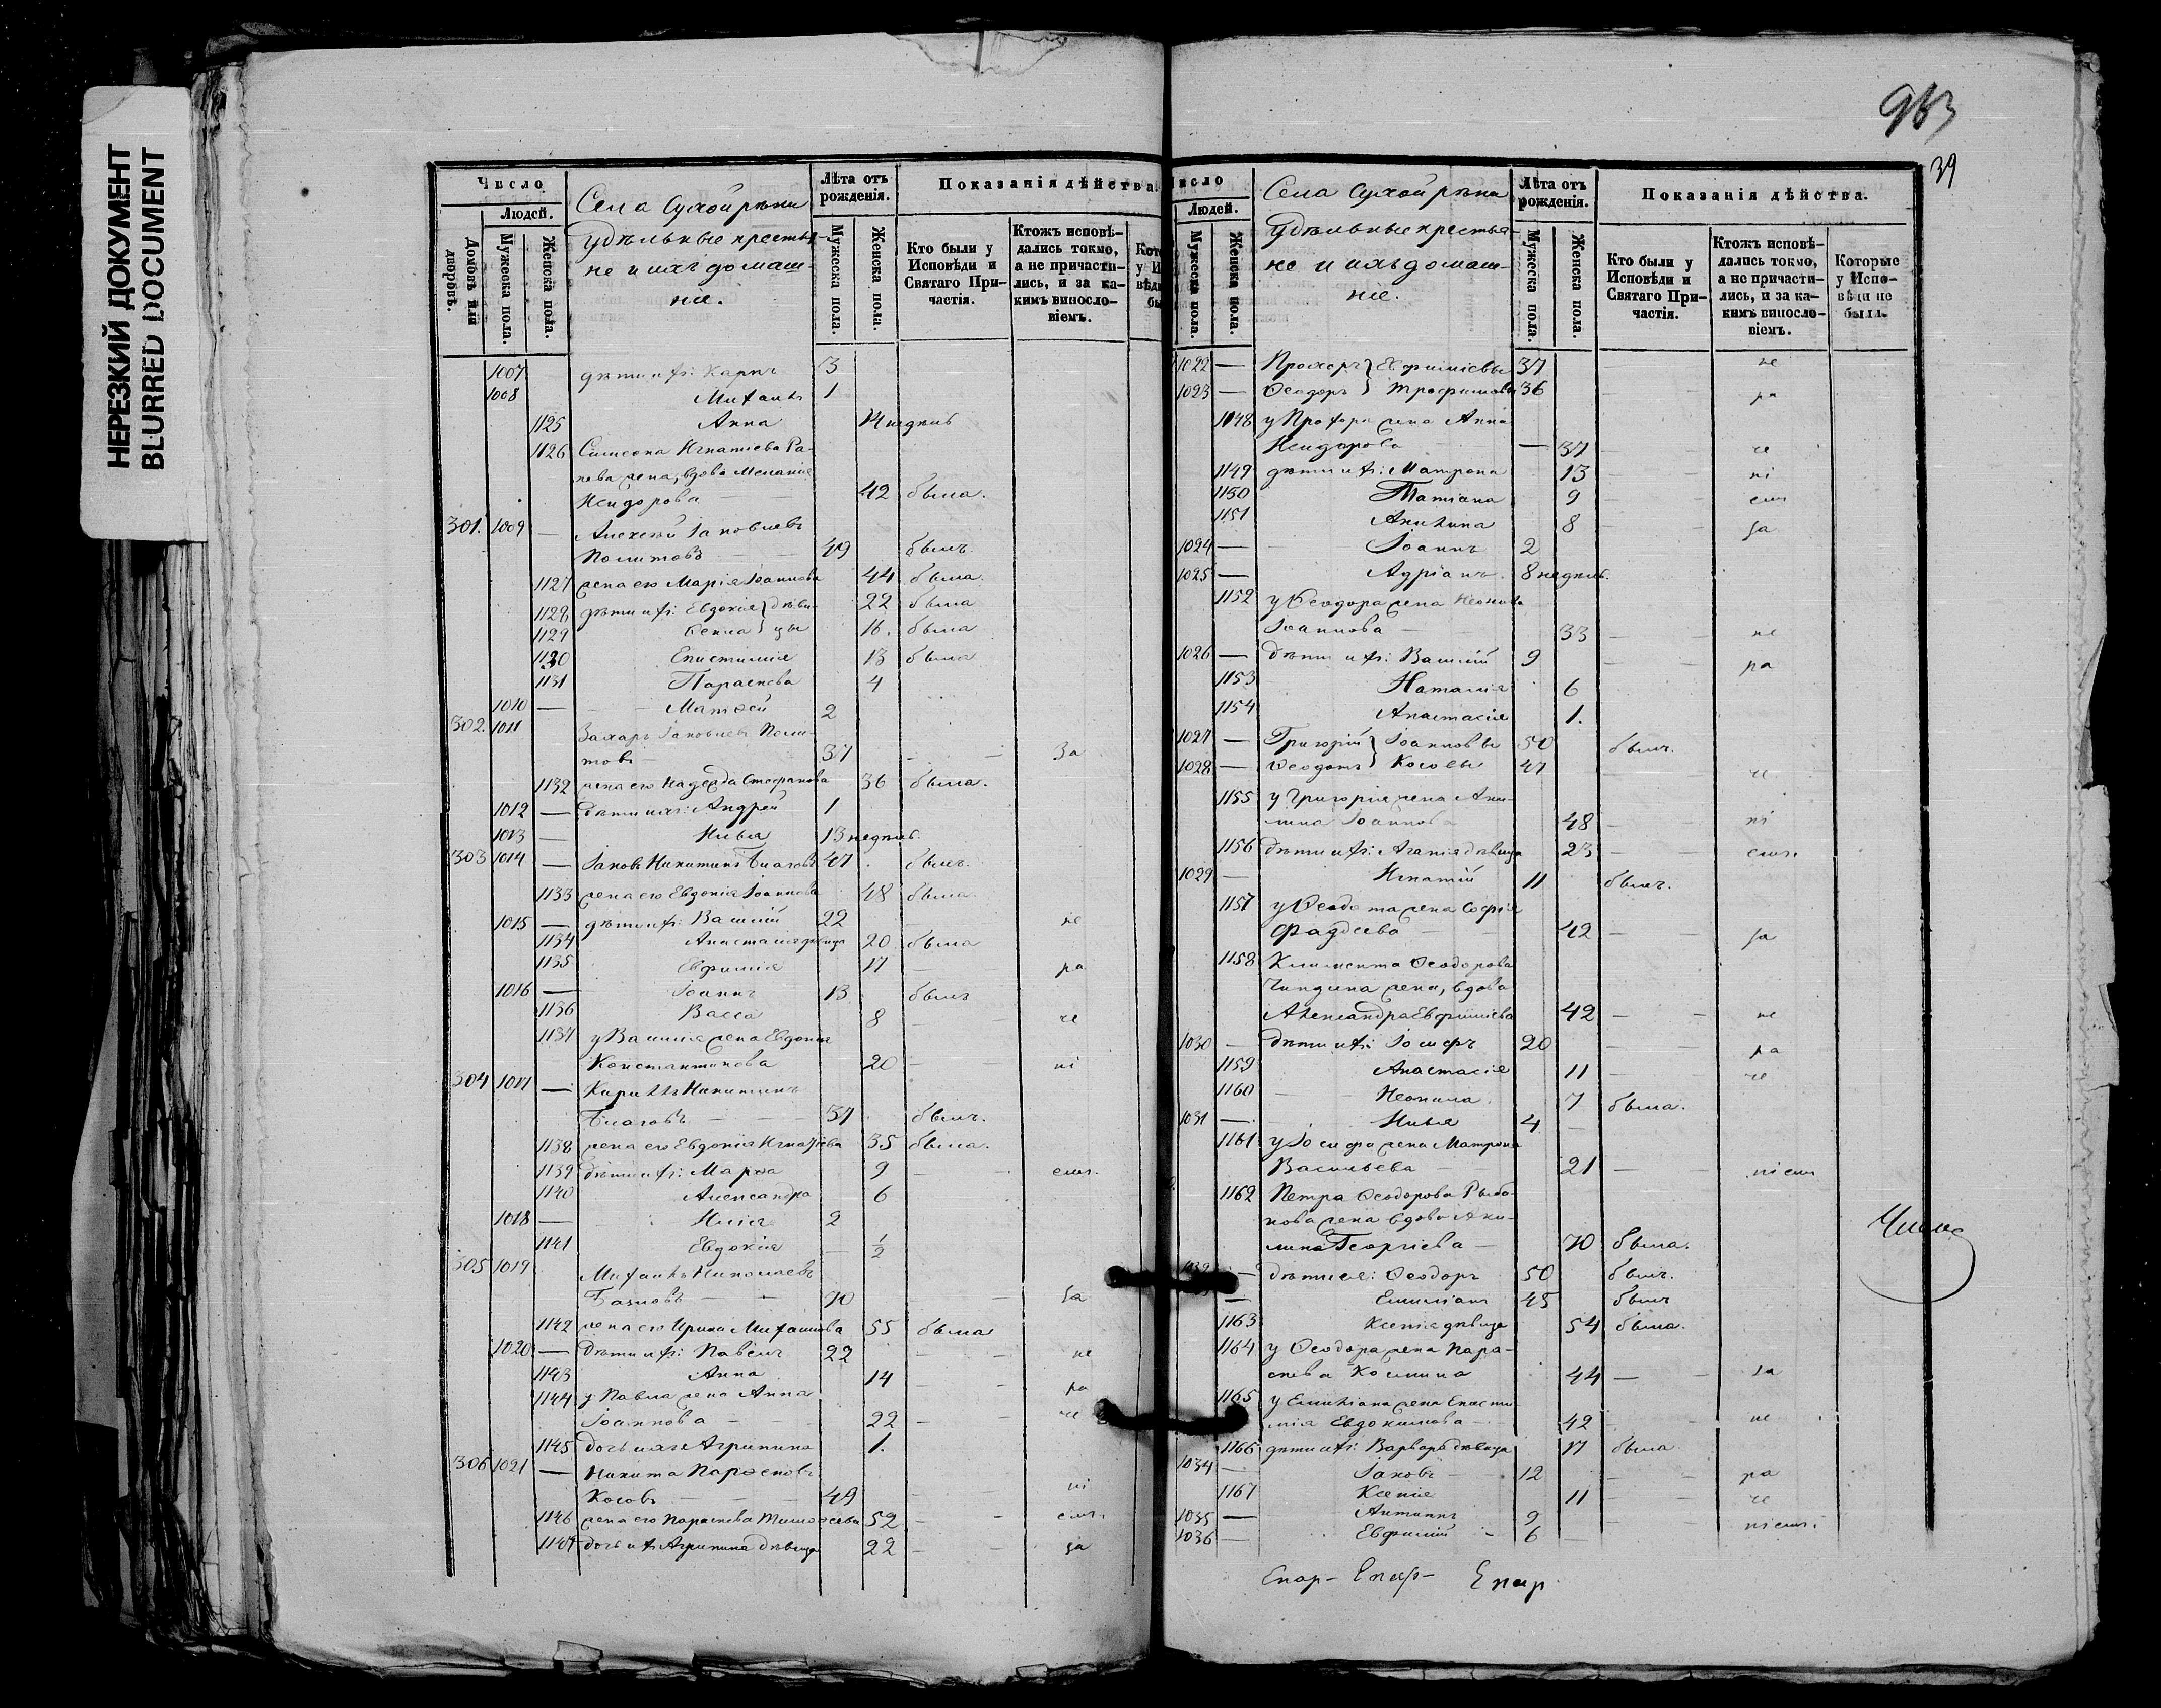 НЕРЕЗКИЙ ДОКУМЕНТ
BLURRED DOCUMENT
Число
Людей.
Домовъ или дворовъ.
Мужеска пола.
Женска пола.
Села Сухой рѣки
Удѣльные крестья-
не и ихъ домаш-
ніе.
Лѣта отъ рожденія.
Мужеска пола.
Женска пола.
Показанія дѣйства.
Кто были у Исповѣди и Святаго При-частія.
Ктожъ исповѣ-дались токмо, а не причасти-лись, и за ка-кимъ винословіемъ.
1007 дѣти ихъ: Карпъ 3
1008 Михаилъ 1
1125 Анна 14 недѣль
1126 Симеона Игнатіева Ра-
жена, вдова Меланія
Исидорова 42 была.
301. 1009 — Алексѣй Іаковлевъ
Политовъ 49 былъ.
1127 жена его Марія Іоаннова 44 была.
1128 дѣти ихъ: Евдокія } дѣви- 22 была
1129 Ѳекла } цы 16. была
1130 Епистимія 13 была
1131 Параскева 4
1010 — Матѳей 2
302. 1011 Захаръ Іаковлевъ Поли-
товъ 37 — за
1132 жена его Надежда Стефанова 36 была.
1012 — Дѣти ихъ: Андрей 1
1013 — Илья 13 недѣль.
303 1014 — Іаковъ Никитинъ 47 былъ.
1133 жена его Евдокія Іоаннова 48 была.
1015 — дѣти ихъ: Василій 22 не
1134 Анастасія дѣвица 20 была
1135 Евфимія 17 — ра
1016 — Іоаннъ 13 былъ
1136 Васса 8 — че
1137 у Василія жена Евдокія
Константинова 20 — ні
304 1017 — Кириллъ Никитинъ
37 былъ.
1138 жена его Евдокія Игнатіева 35 была.
1139 дѣти ихъ: Марѳа 9 — емъ.
1140 Александра 6
1018 — Илія 2
1141 Евдокія — ½
305 1019 Михаилъ Николаевъ
70 — за
1142 жена его Ирина Михаилова 55 была
1020 — Дѣти ихъ: Павелъ 22 — не
1143 Анна 14 — ра
1144 у Павла жена Анна
Іоаннова 22 — че
1145 дочь ихъ Агрипина 1.
306 1021 — Никита Парѳеновъ
Косовъ 49 ні
1146 жена его Параскева Тимоѳеева 52 — емъ.
1147 дочь ихъ Агрипина дѣвица 22 — за
953
39
Число
Людей.
Мужеска пола.
Женска пола.
Села Сухой рѣки
Удѣльные крестья-
не и ихъ домаш-
ніе.
Лѣта отъ рожденія.
Мужеска пола.
Женска пола.
Показанія дѣйства.
Кто были у Исповѣди и Святаго При-частія.
Ктожъ исповѣ-дались токмо, а не причасти-лись, и за ка-кимъ винословіемъ.
Которые у Испо-вѣди не были.
1022 — Прохоръ } Евфиміевы 37 не
1023 — Ѳеодоръ } Трофимовы 36 ра
1148 у Прохора жена Анна
Исидорова — 37 — че
1149 дѣти ихъ: Матрона 13 — ні
1150 Татіана 9 — емъ
1151 Акилина 8 — за
1024 — Іоаннъ 2
1025 — Адріанъ. 8 недѣль.
1152 у Ѳеодора жена Неонила
Іоаннова 33 — не
1026 — Дѣти ихъ: Василій 9 — ра
1153 Наталія 6
1154 Анастасія 1.
1027 — Григорій } Іоанновы 50 былъ.
1028 — Ѳеодотъ } Косовы 47 че
1155 у Григорія жена Аки-
лина Іоаннова 48 — ні
1156 Дѣти ихъ: Агапія дѣвица 23 — емъ.
1029 — Игнатій 11 былъ.
1157 у Ѳеодота жена Софія
Фаддѣева 42 — за
1158 Климента Ѳеодорова
жена, вдова
Александра Евфиміева 42 — не
1030 — Дѣти ихъ: Іосифъ 20 ра
1159 Анастасія 11 — че
1160 Неонила 7 была.
1031 — Илья 4 —
1161 у Іосифа жена Матрона
Васильева 21 — ніемъ
1162 Петра Ѳеодорова Рыба-
кова жена вдова Аки-
лина Георгіева — 70 была.
1032 — Дѣти ея: Ѳеодоръ 50 былъ.
— Емиліанъ 45 былъ
1163 Ксенія дѣвица 54 была.
1164 у Ѳеодора жена Пара-
скева Космина 44 — за
1165 у Емиліана жена Еписти-
мія Евдокимова 42 — не
1166 дѣти ихъ: Варвара дѣвица 17 была.
1034 — Іаковъ 12 — ра
1167 Ксенія 11 — че
1035 — Антипъ 9 — ніемъ.
1036 — Евфимій 6